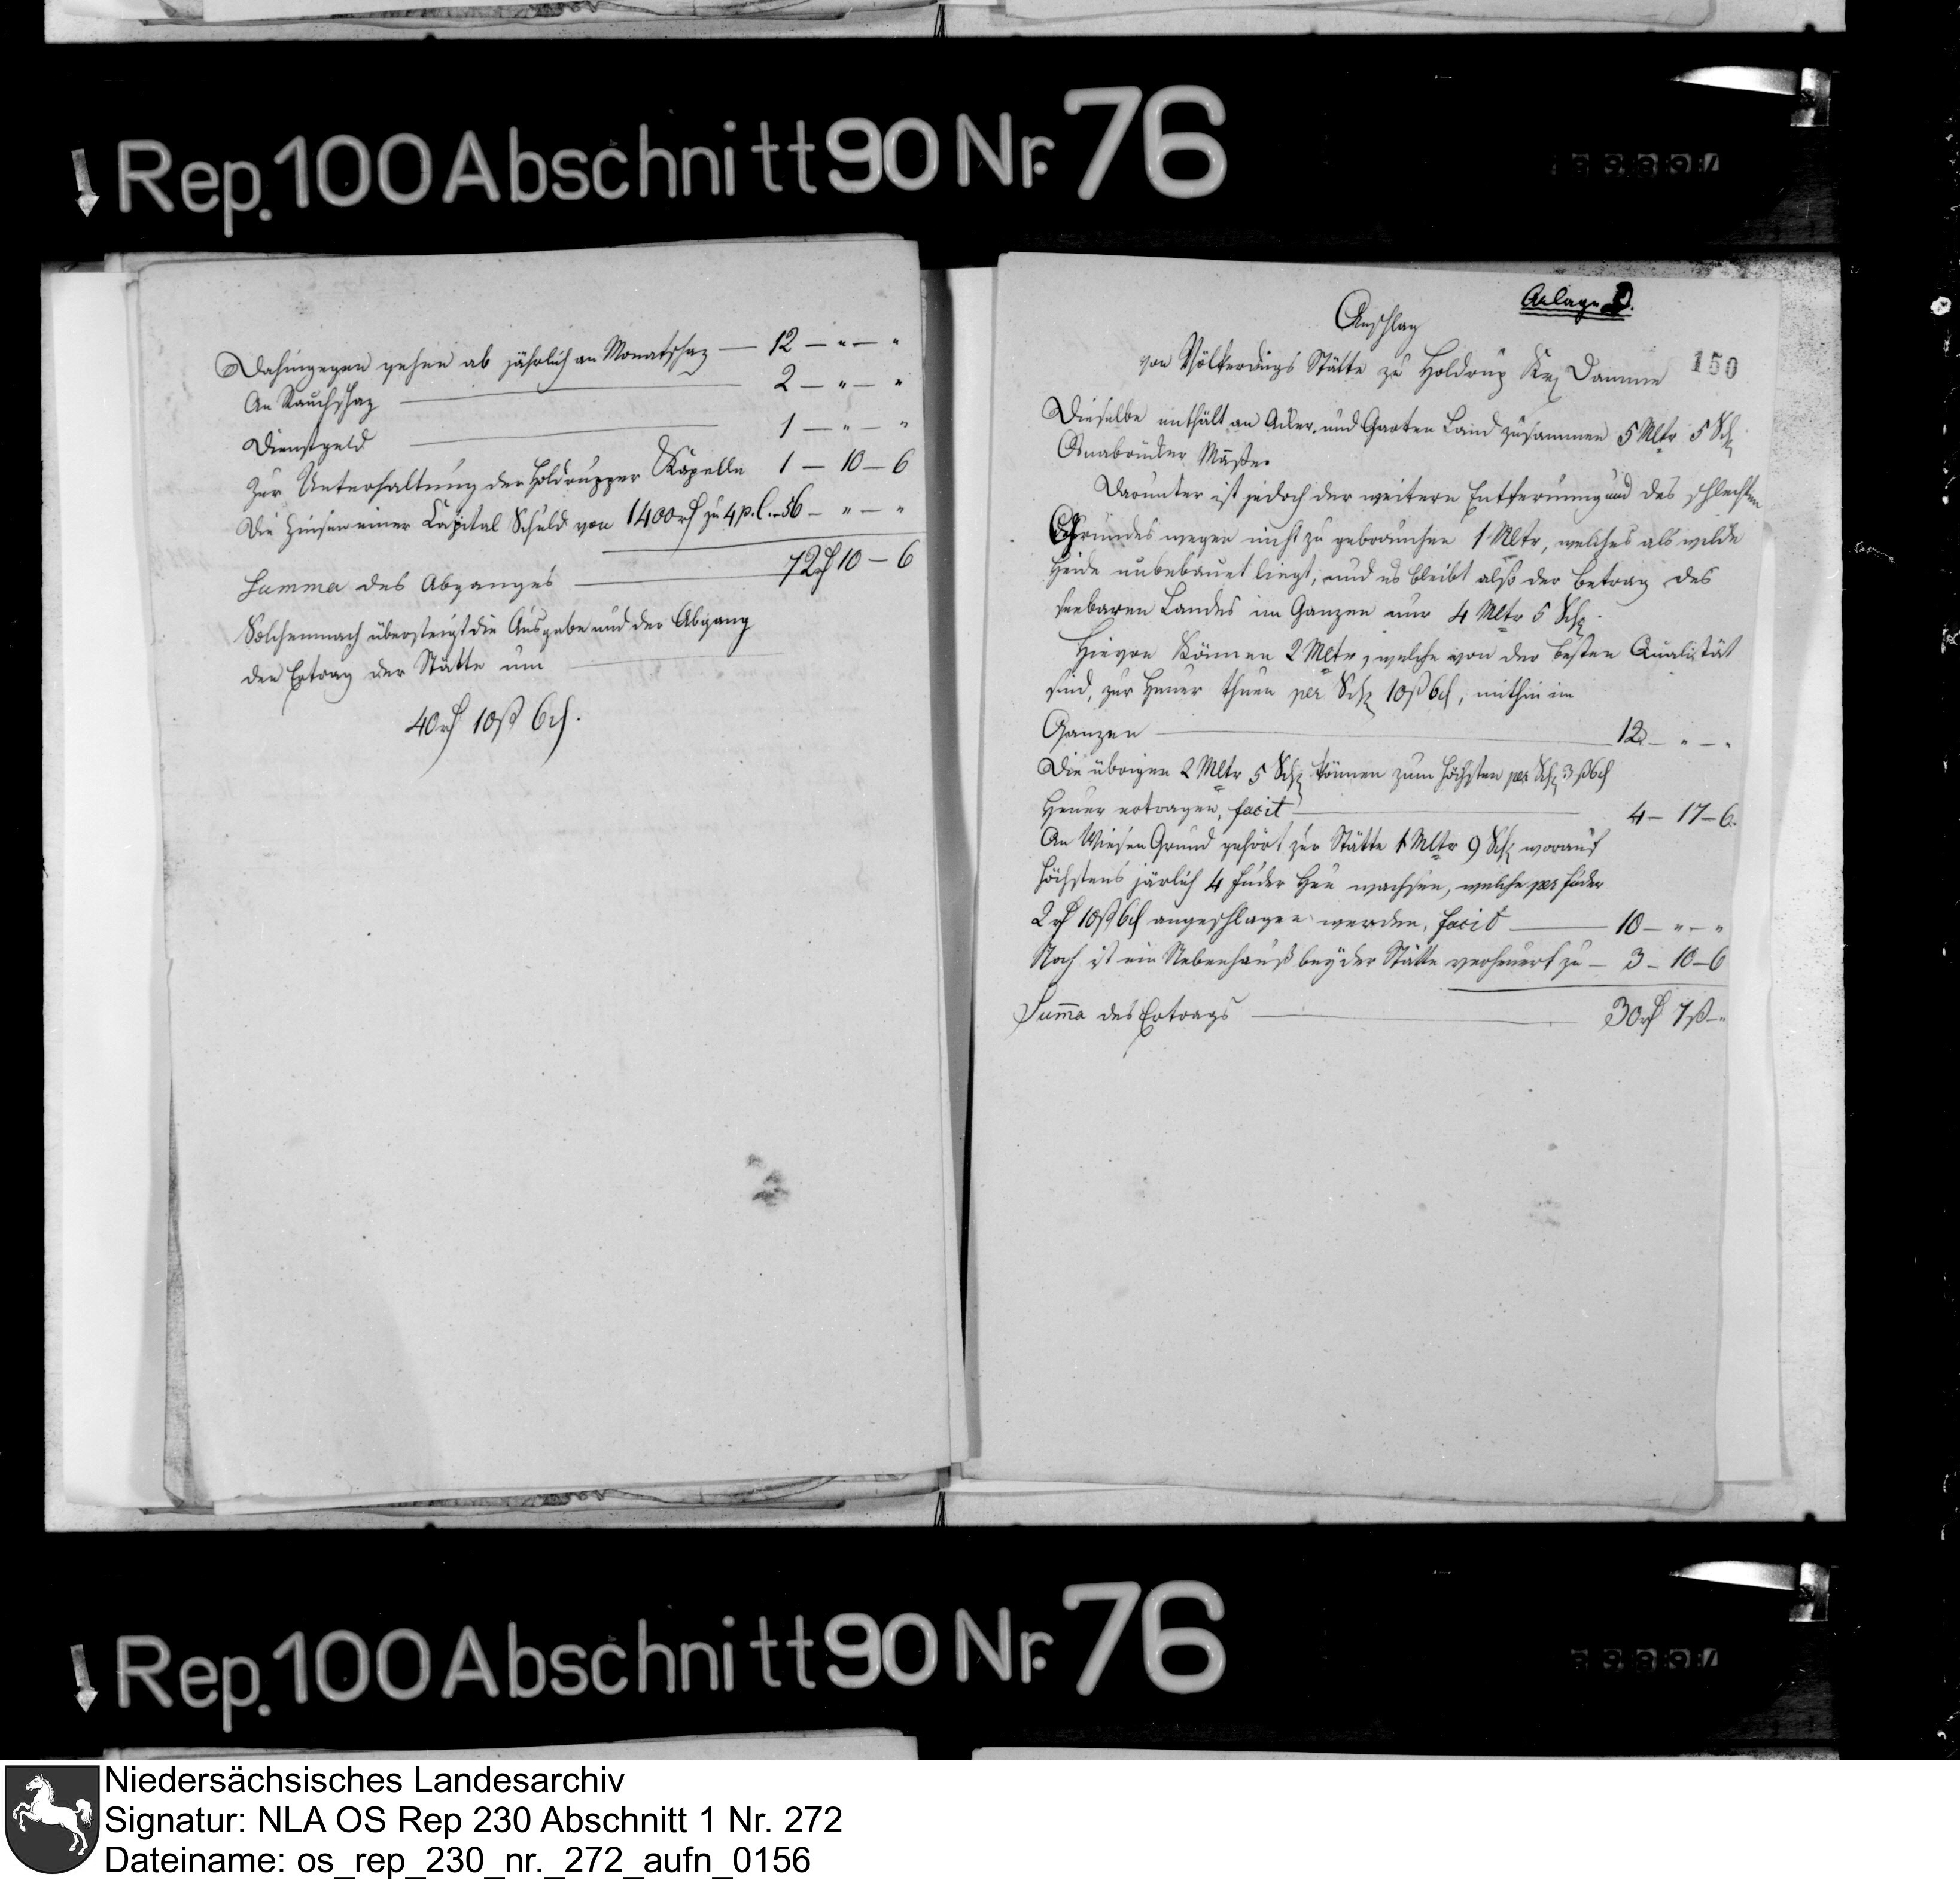 Rep. 100 Abschnitt 90 Nr. 76
Dahingegen gehen ab jährlich an Monatschaz — 12 — " — "
An Rauchschaz — 2 — " — "
Dienstgeld — 1 — " — "
Zur Unterhaltung der Holdrupper Kapelle 1 — 10 — 6
Die Zinsen einer Capital Schuld von 1400 rt zu 4 p. C. — 56 — " — "
Summa des Abganges — 72 rt 10 — 6
Solchemnach übersteigt die Ausgabe und der Abgang
den Ertrag der Stätte um
40 rt 10 ß 6 d.
Anlage D.
150
Anschlag
von Völkerdings Stätte zu Holdrup Ksp Damme
Dieselbe enthält an Acker und Garten Land zusammen 5 Mltr 5 Sch
Osnabrücker Maße.
Darunter ist jedoch der weitern Entfernung und des schlechten
Grundes wegen nicht zu gebrauchen 1 Mltr, welches als wilde
Heide unbebauet liegt, und es bleibt also der Betrag des
seebaren Landes im Ganzen nur 4 Mltr 5 Sch.
Hievon können 2 Mltr, welche von der besten Qualität
sind, zur Heuer thuen per Sch 10 ß 6 d, mithin im
Ganzen — 12 — " — "
Die übrigen 2 Mltr 5 Sch können zum höchsten per Sch 3 ß 6 d
Heuer ertragen, facit — 4 — 17 — 6.
An Wiesen Grund gehört zur Stätte 1 Mltr 9 Sch worauf
höchstens järlich 4 Fuder Heu wachsen, welche per Fuder
2 rt 10 ß 6 d angeschlagen werden, facit — 10 — " — "
Noch ist ein Nebenhauß bey der Stätte verheuert zu — 3 — 10 — 6
Summa des Ertrags — 30 rt 7 ß — "
Rep. 100 Abschnitt 90 Nr. 76
Niedersächsisches Landesarchiv
Signatur: NLA OS Rep 230 Abschnitt 1 Nr. 272
Dateiname: os_rep_230_nr._272_aufn_0156